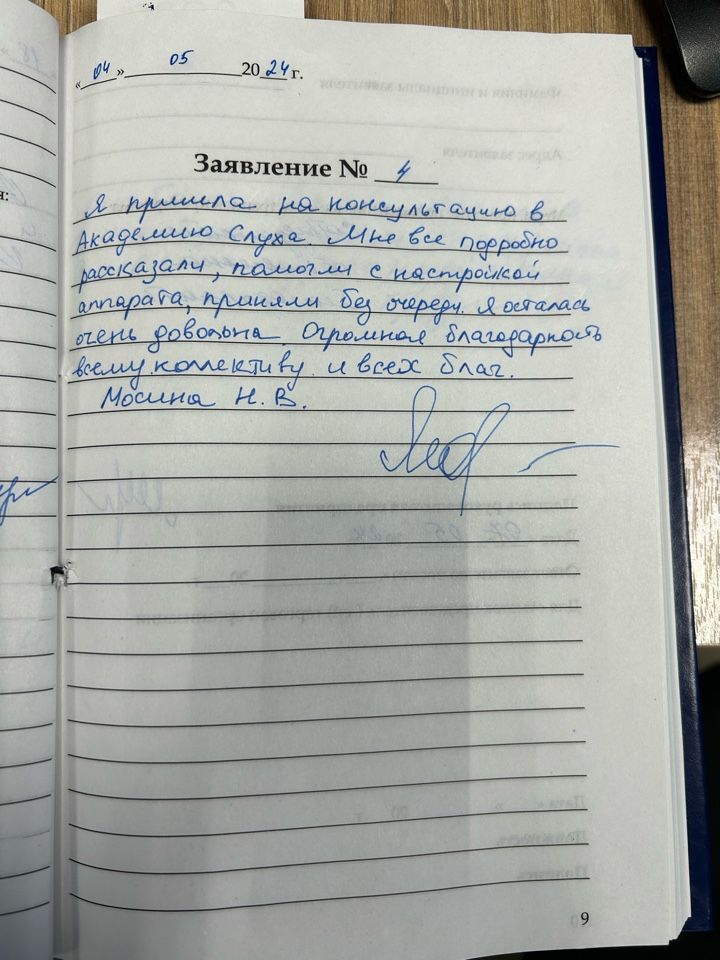 «04» 05 2024 г.
Заявление № 4
Я пришла на консультацию в
Академию Слуха. Мне все подробно
рассказали, помогли с настройкой
аппарата, приняли без очереди. Я осталась
очень довольна. Огромная благодарность
всему коллективу и всех благ.
Мосина Н. В.
9